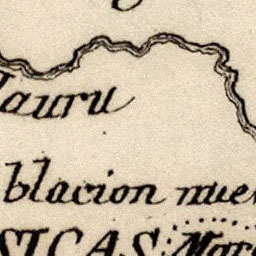 auru
blacion nue
SICAS Mar